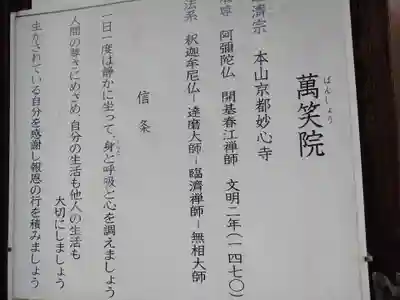 ばんしょう
萬笑院
済宗 本山京都妙心寺
尊 阿彌陀仏 開基春江禅師 文明二年(一四七〇)
法系 釈迦牟尼仏−達磨大師−臨濟禅師−無相大師
信条
一日一度は静かに坐って、身と呼吸と心を調えましょう
人間の尊さにめざめ、自分の生活も他人の生活も
大切にしましょう
生かされている自分を感謝し報恩の行を積みましょう